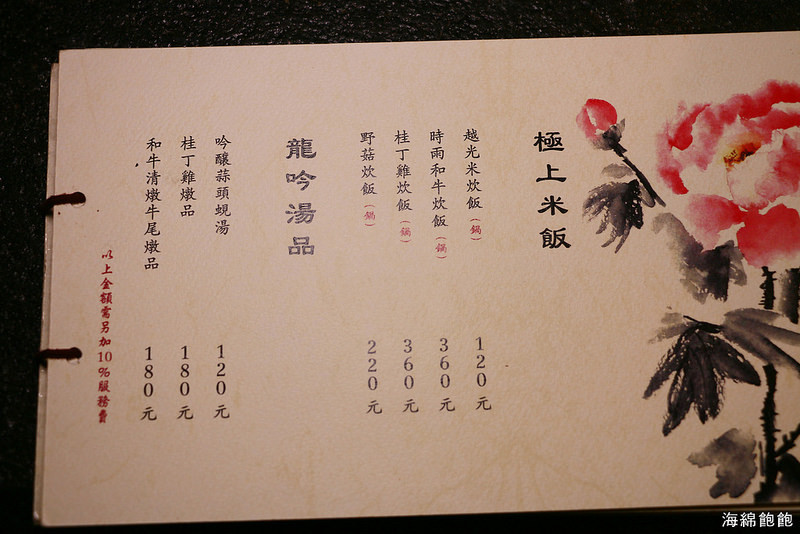 極上米飯
越光米炊飯(鍋) 120元
時雨和牛炊飯(鍋) 360元
桂丁雞炊飯(鍋) 360元
野菇炊飯(鍋) 220元
龍吟湯品
吟釀蒜頭蜆湯 120元
桂丁雞燉品 180元
和牛清燉牛尾燉品 180元
以上金額需另加10%服務費
海綿飽飽